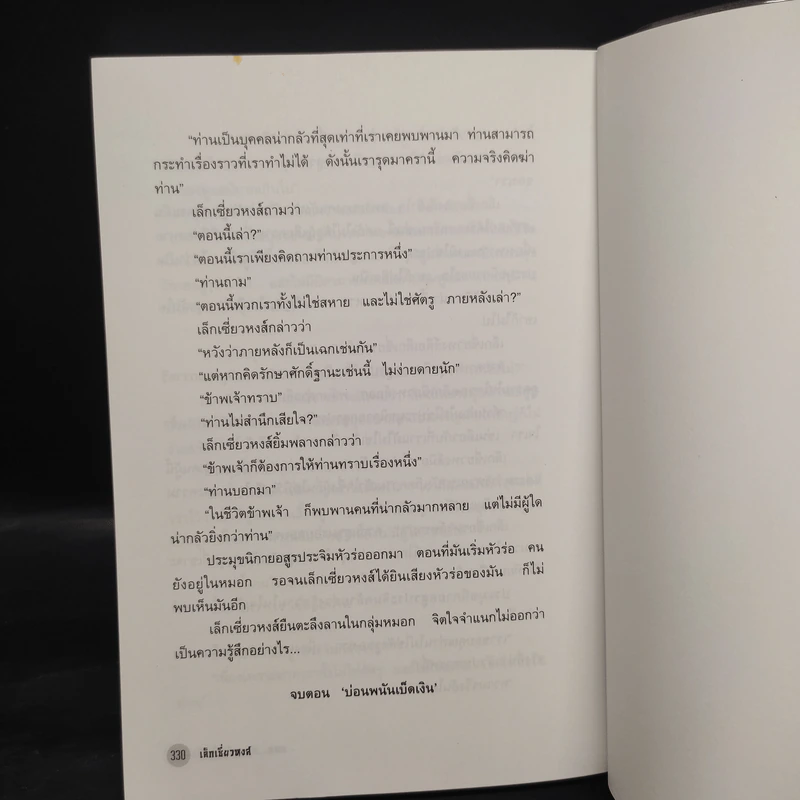 “ท่านเป็นบุคคลน่ากลัวที่สุดเท่าที่เราเคยพบพานมา ท่านสามารถ
กระทำเรื่องราวที่เราทำไม่ได้ ดังนั้นเรารุดมาครานี้ ความจริงคิดฆ่า
ท่าน”
เล็กเซี่ยวหงส์ถามว่า
“ตอนนี้เล่า?”
“ตอนนี้เราเพียงคิดถามท่านประการหนึ่ง”
“ท่านถาม”
“ตอนนี้พวกเราทั้งไม่ใช่สหาย และไม่ใช่ศัตรู ภายหลังเล่า?”
เล็กเซี่ยวหงส์กล่าวว่า
“หวังว่าภายหลังก็เป็นเฉกเช่นกัน”
“แต่หากคิดรักษาศักดิ์ฐานะเช่นนี้ ไม่ง่ายดายนัก”
“ข้าพเจ้าทราบ”
“ท่านไม่สำนึกเสียใจ?”
เล็กเซี่ยวหงส์ยิ้มพลางกล่าวว่า
“ข้าพเจ้าก็ต้องการให้ท่านทราบเรื่องหนึ่ง”
“ท่านบอกมา”
“ในชีวิตข้าพเจ้า ก็พบพานคนที่น่ากลัวมากหลาย แต่ไม่มีผู้ใด
น่ากลัวยิ่งกว่าท่าน”
ประมุขนิกายอสูรประจิมหัวร่อออกมา ตอนที่มันเริ่มหัวร่อ คน
ยังอยู่ในหมอก รอจนเล็กเซี่ยวหงส์ได้ยินเสียงหัวร่อของมัน ก็ไม่
พบเห็นมันอีก
เล็กเซี่ยวหงส์ยืนตะลึงลานในกลุ่มหมอก จิตใจจำแนกไม่ออกว่า
เป็นความรู้สึกอย่างไร...
จบตอน ‘บ่อนพนันเบ็ดเงิน’
330 เล็กเซี่ยวหงส์